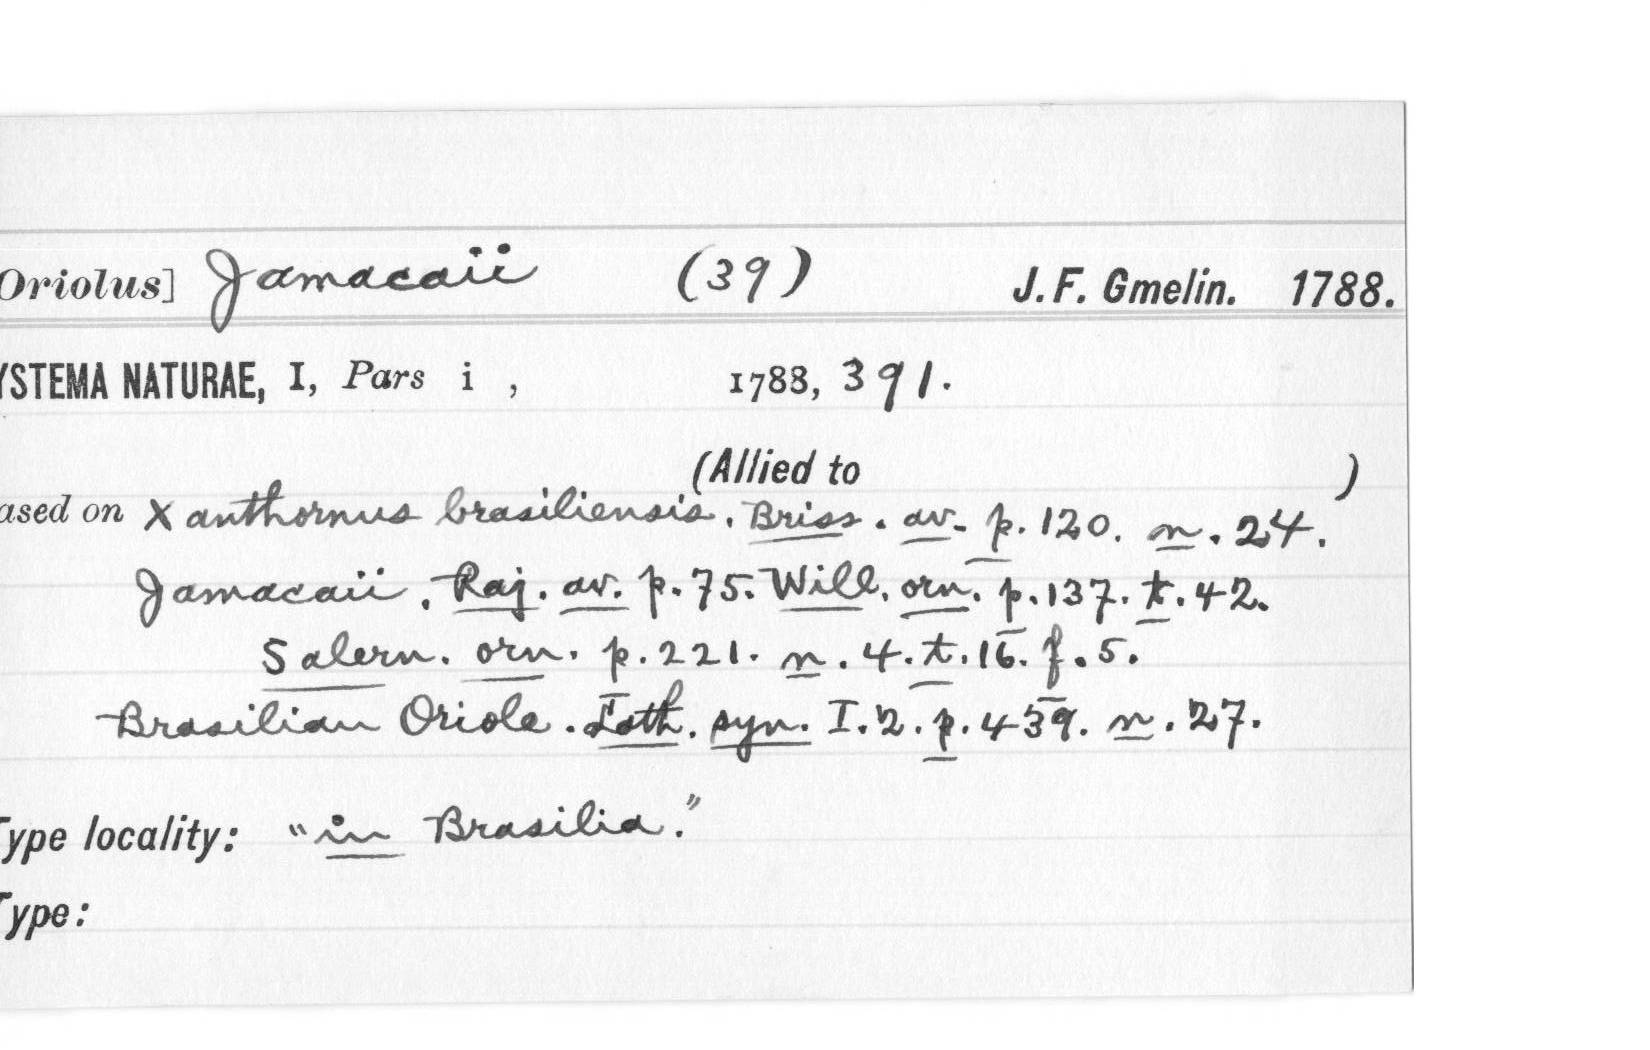 Oriolus] Jamacaii (39) J. F. Gmelin. 1788.
YSTEMA NATURAE, I, Pars i , 1788, 391.
(Allied to )
ased on Xanthornus brasiliensis. Briss. av. p. 120. n. 24.
Jamacaii. Raj. av. p. 75. Will. orn. p. 137. t. 42.
Salern. orn. p. 221. n. 4. t. 16. f. 5.
Brasilian Oriole. Lath. syn. I. 2. p. 439. n. 27.
Type locality: "in Brasilia."
Type: